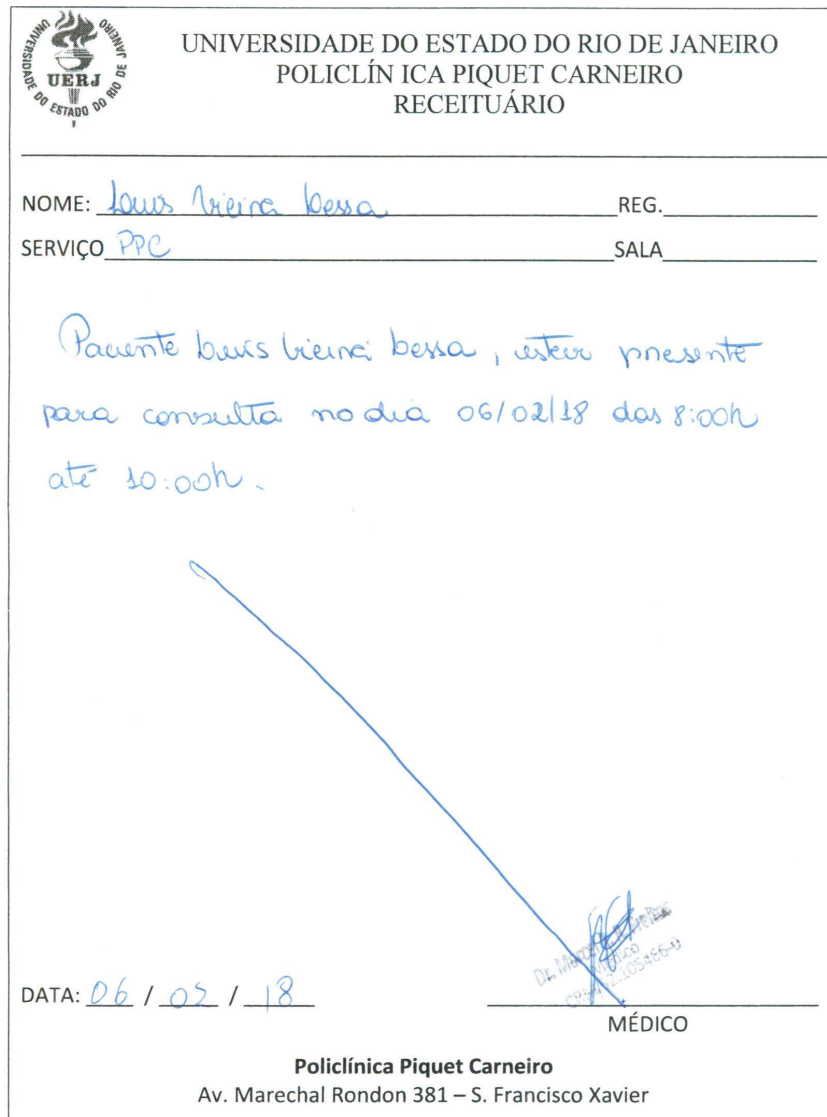 UNIVERSIDADE DO ESTADO DO RIO DE JANEIRO
UERJ
UNIVERSIDADE DO ESTADO DO RIO DE JANEIRO
POLICLÍN ICA PIQUET CARNEIRO
RECEITUÁRIO
NOME: Luis Vieira Bessa REG.
SERVIÇO PPC SALA
Paciente Luis Vieira Bessa, esteve presente
para consulta no dia 06/02/18 das 8:00h
até 10:00h.
Dr.
Médico
105486-0
DATA: 06 / 02 / 18
MÉDICO
Policlínica Piquet Carneiro
Av. Marechal Rondon 381 – S. Francisco Xavier